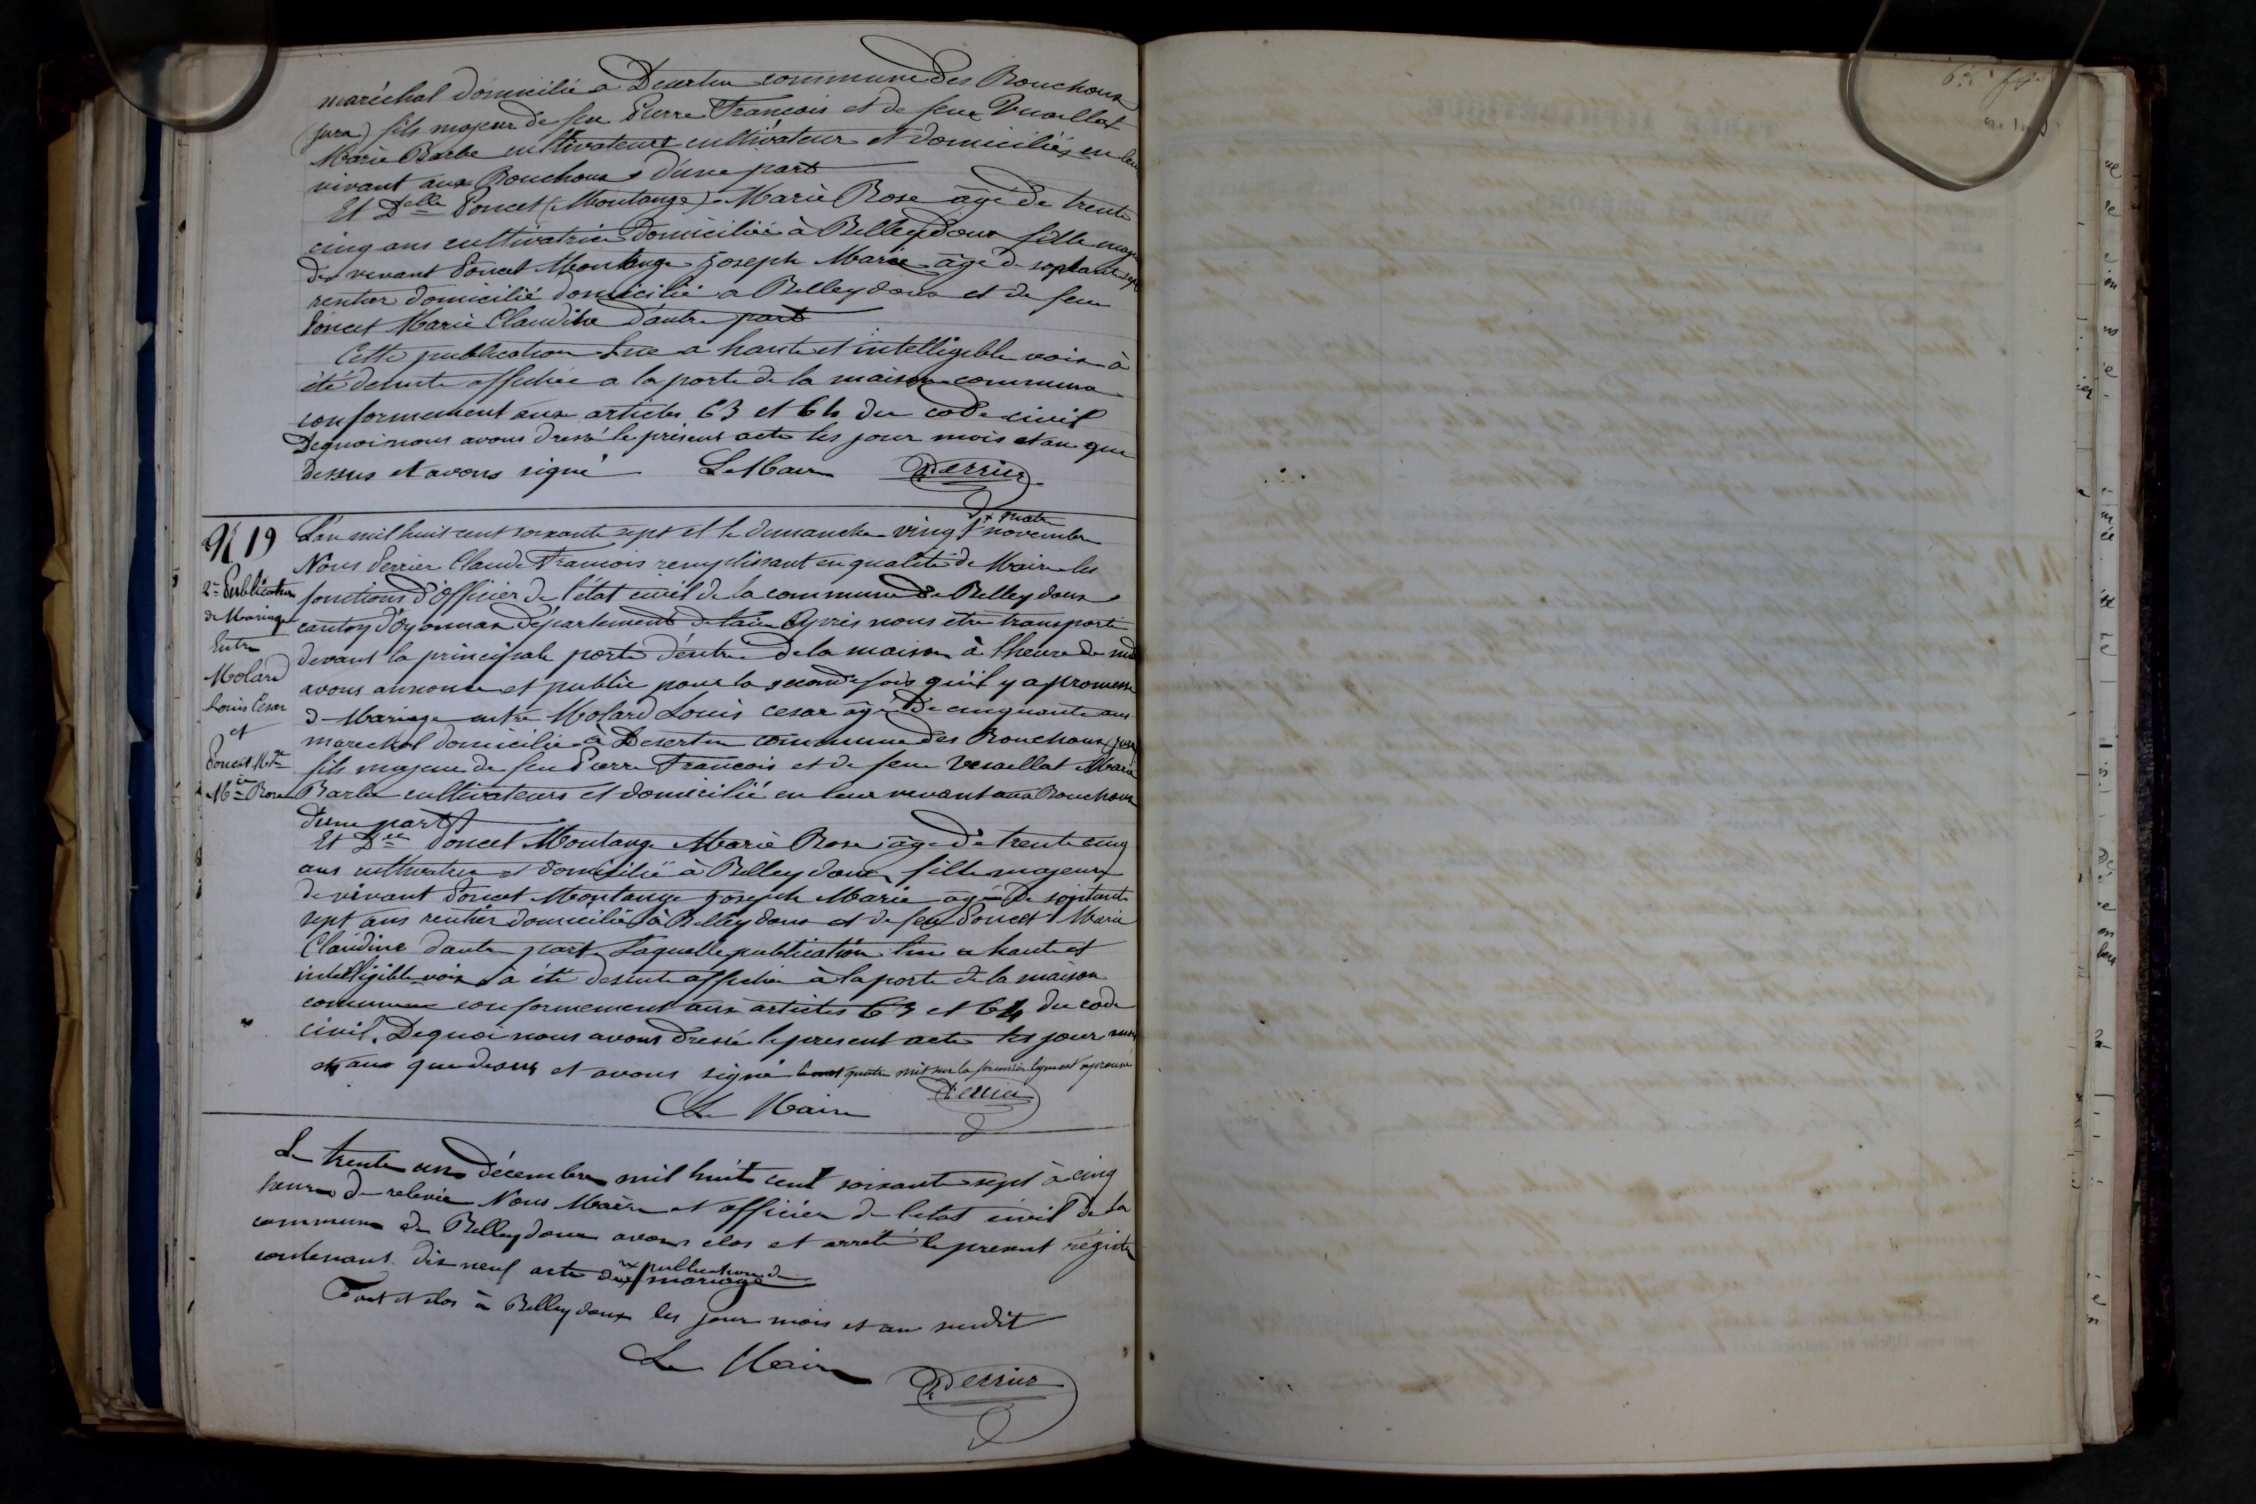 maréchal domicilié a Desertin commune des Bouchoux
(jura) fils majeur de feu Pierre François et de feue Vuaillat
Marie Barbe cultivateurs cultivateur et domiciliés en leur
vivant aux Bouchoux d'une part
Et Delle Poncet (Montange) Marie Rose âgé de trente
cinq ans cultivatrice domiciliée à Belleydoux fille majeu
de vivant Poncet Montange Joseph Marie âgé de soptante sept
rentier domicilié domicilié a Belleydoux et de feue
Poncet Marie Claudine d'autre part
Cette publication lue a haute et intelligible voix à
été desuite affichée a la porte de la maison commune
conformement aux articles 63 et 64 du code civil
Dequoi nous avons dressé le présent acte les jour mois et an que
dessus et avons signé Le Maire Perrier
N 19
2e Publication
de Mariage
Entre
Molard
Louis César
et
Poncet Mge
Mie Rose
L'an mil huit cent soixante sept et le dimanche vingt quatre novembre
Nous Perrier Claude François remplissant en qualité de Maire les
fonctions d'Officier de l'état civil de la commune de Belleydoux
canton d'Oyonnax département de l'ain Après nous être transporté
devant la principale porte d'entre de la maison à l'heure de midi
avons annoncé et publié pour la seconde fois qu'il y a promesse
de Mariage entre Molard Louis cesar âgé de cinquante ans
marechal domicilié à Desertin commune des Bouchoux (jura)
fils majeur de feu Pierre François et de feue Vuaillat Marie
Barbe cultivateurs et domicilié en leur vivant aux Bouchoux
d'une part
Et Dlle Poncet Montange Marie Rose âgé de trente cinq
ans cultivatrice et domicilié à Belleydoux fille majeure
de vivant Poncet Montange Joseph Marie agé de soptante
sept ans rentier domicilié à Belleydoux et de feue Poncet Marie
Claudine d'autre part Laquelle publication lue a haute et
intelligible voix à été desuite affichée à la porte de la maison
commune conformement aux articles 63 et 64 du code
civil. Dequoi nous avons dressé le present acte les jour mois
et an que dessus et avons signé le mot quatre mit sur la première ligne est approuvé
Le Maire Perrier
Le trente un décembre mil huit cent soixante sept à cinq
heures de relevée Nous Maire et officier de l'etat civil de la
commune de Belleydoux avons clos et arreté le present registre
contenant dix neuf acte de publication de
mariage
Fait et clos à Belleydoux les jour mois et an susdit
Le Maire Perrier